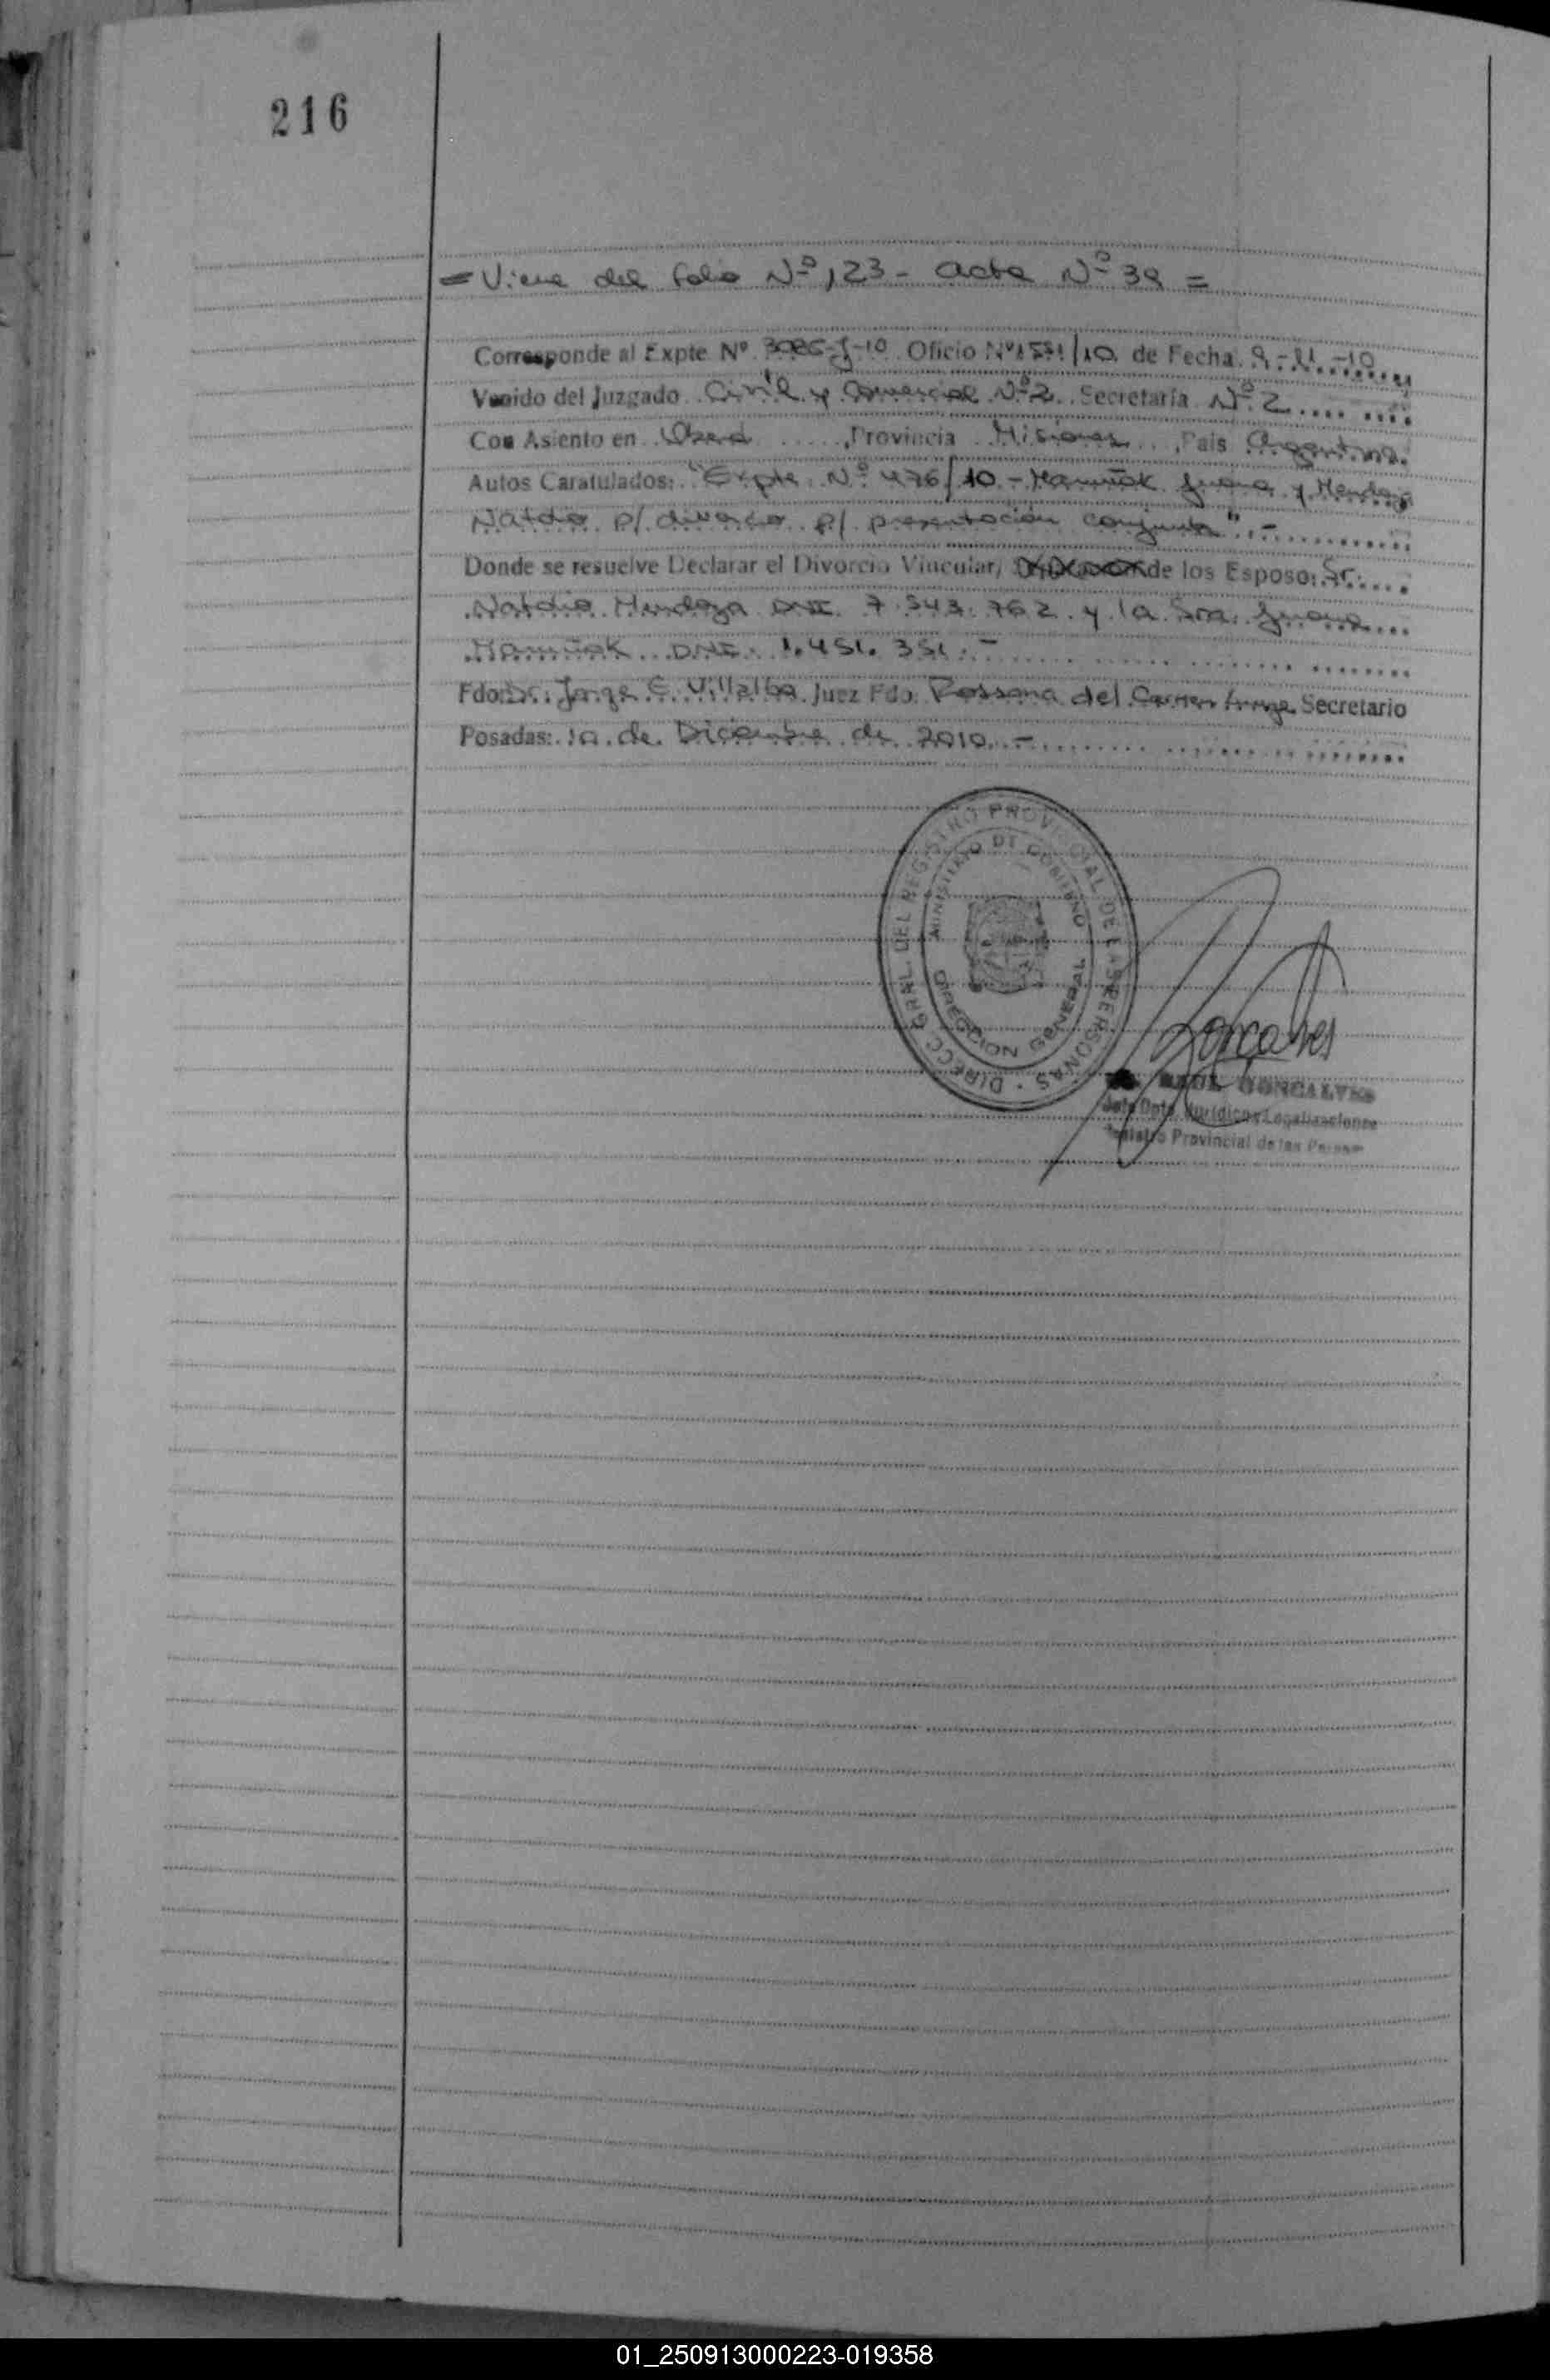 216
= Viene del folio Nº 123 - acta Nº 38 =
Corresponde al Expte Nº 3086-J-10 Oficio Nº 1551/10 de Fecha 9-11-10
Venido del Juzgado Civil y Comercial Nº 2 Secretaría Nº 2
Con Asiento en Oberá, Provincia Misiones, País Argentina.
Autos Caratulados: "Expte. Nº 476/10 - Juana y Mendoza
Natalio p/ divorcio p/ presentación conjunta".-
Donde se resuelve Declarar el Divorcio Vincular, de los Esposo: Sr.
Natalio Mendoza DNI. 7.543.762 y la Sra. Juana
DNI. 1.451.351.-
Fdo: Dr. Jorge E. Villalba Juez Fdo. Rossana del Carmen Secretario
Posadas: 10 de Diciembre de 2010.-
DIRECC. GRAL. DEL REGISTRO PROVINCIAL DE LAS PERSONAS
MINISTERIO DE GOBIERNO
DIRECCION GENERAL
Goncalves
RAUL GONCALVES
Jefe Dpto. Jurídico y Legalizaciones
Registro Provincial de las Personas
01_250913000223-019358